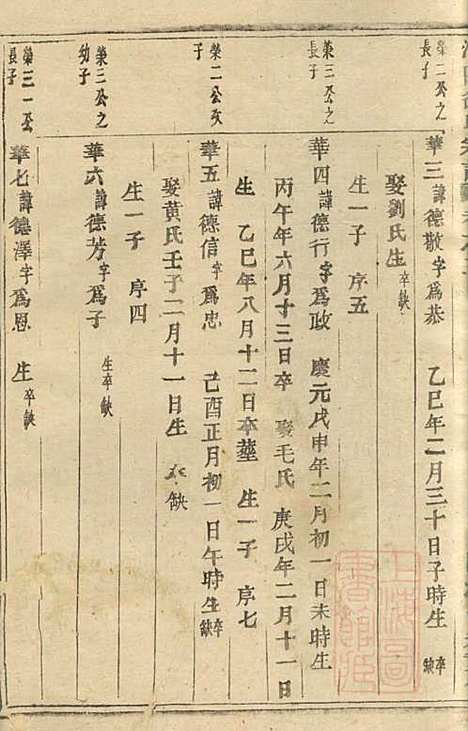 榮二公之長子
華三 諱德敬字為恭 乙巳年二月三十日子時生 卒缺
娶劉氏生卒缺
生一子 序五
榮三公之長子
華四 諱德行字為政 慶元戊申年二月初一日未時生
丙午年六月十三日卒 娶毛氏 庚戌年二月十一日
生 乙巳年八月十二日卒葬 生一子 序七
榮二公次子
華五 諱德信字為忠 己酉正月初一日午時生卒缺
娶黃氏壬子二月十一日生 卒缺
生一子 序四
榮三公之幼子
華六 諱德芳字為子 生卒缺
榮三一公長子
華七 諱德澤字為恩 生卒缺
上海圖書館藏